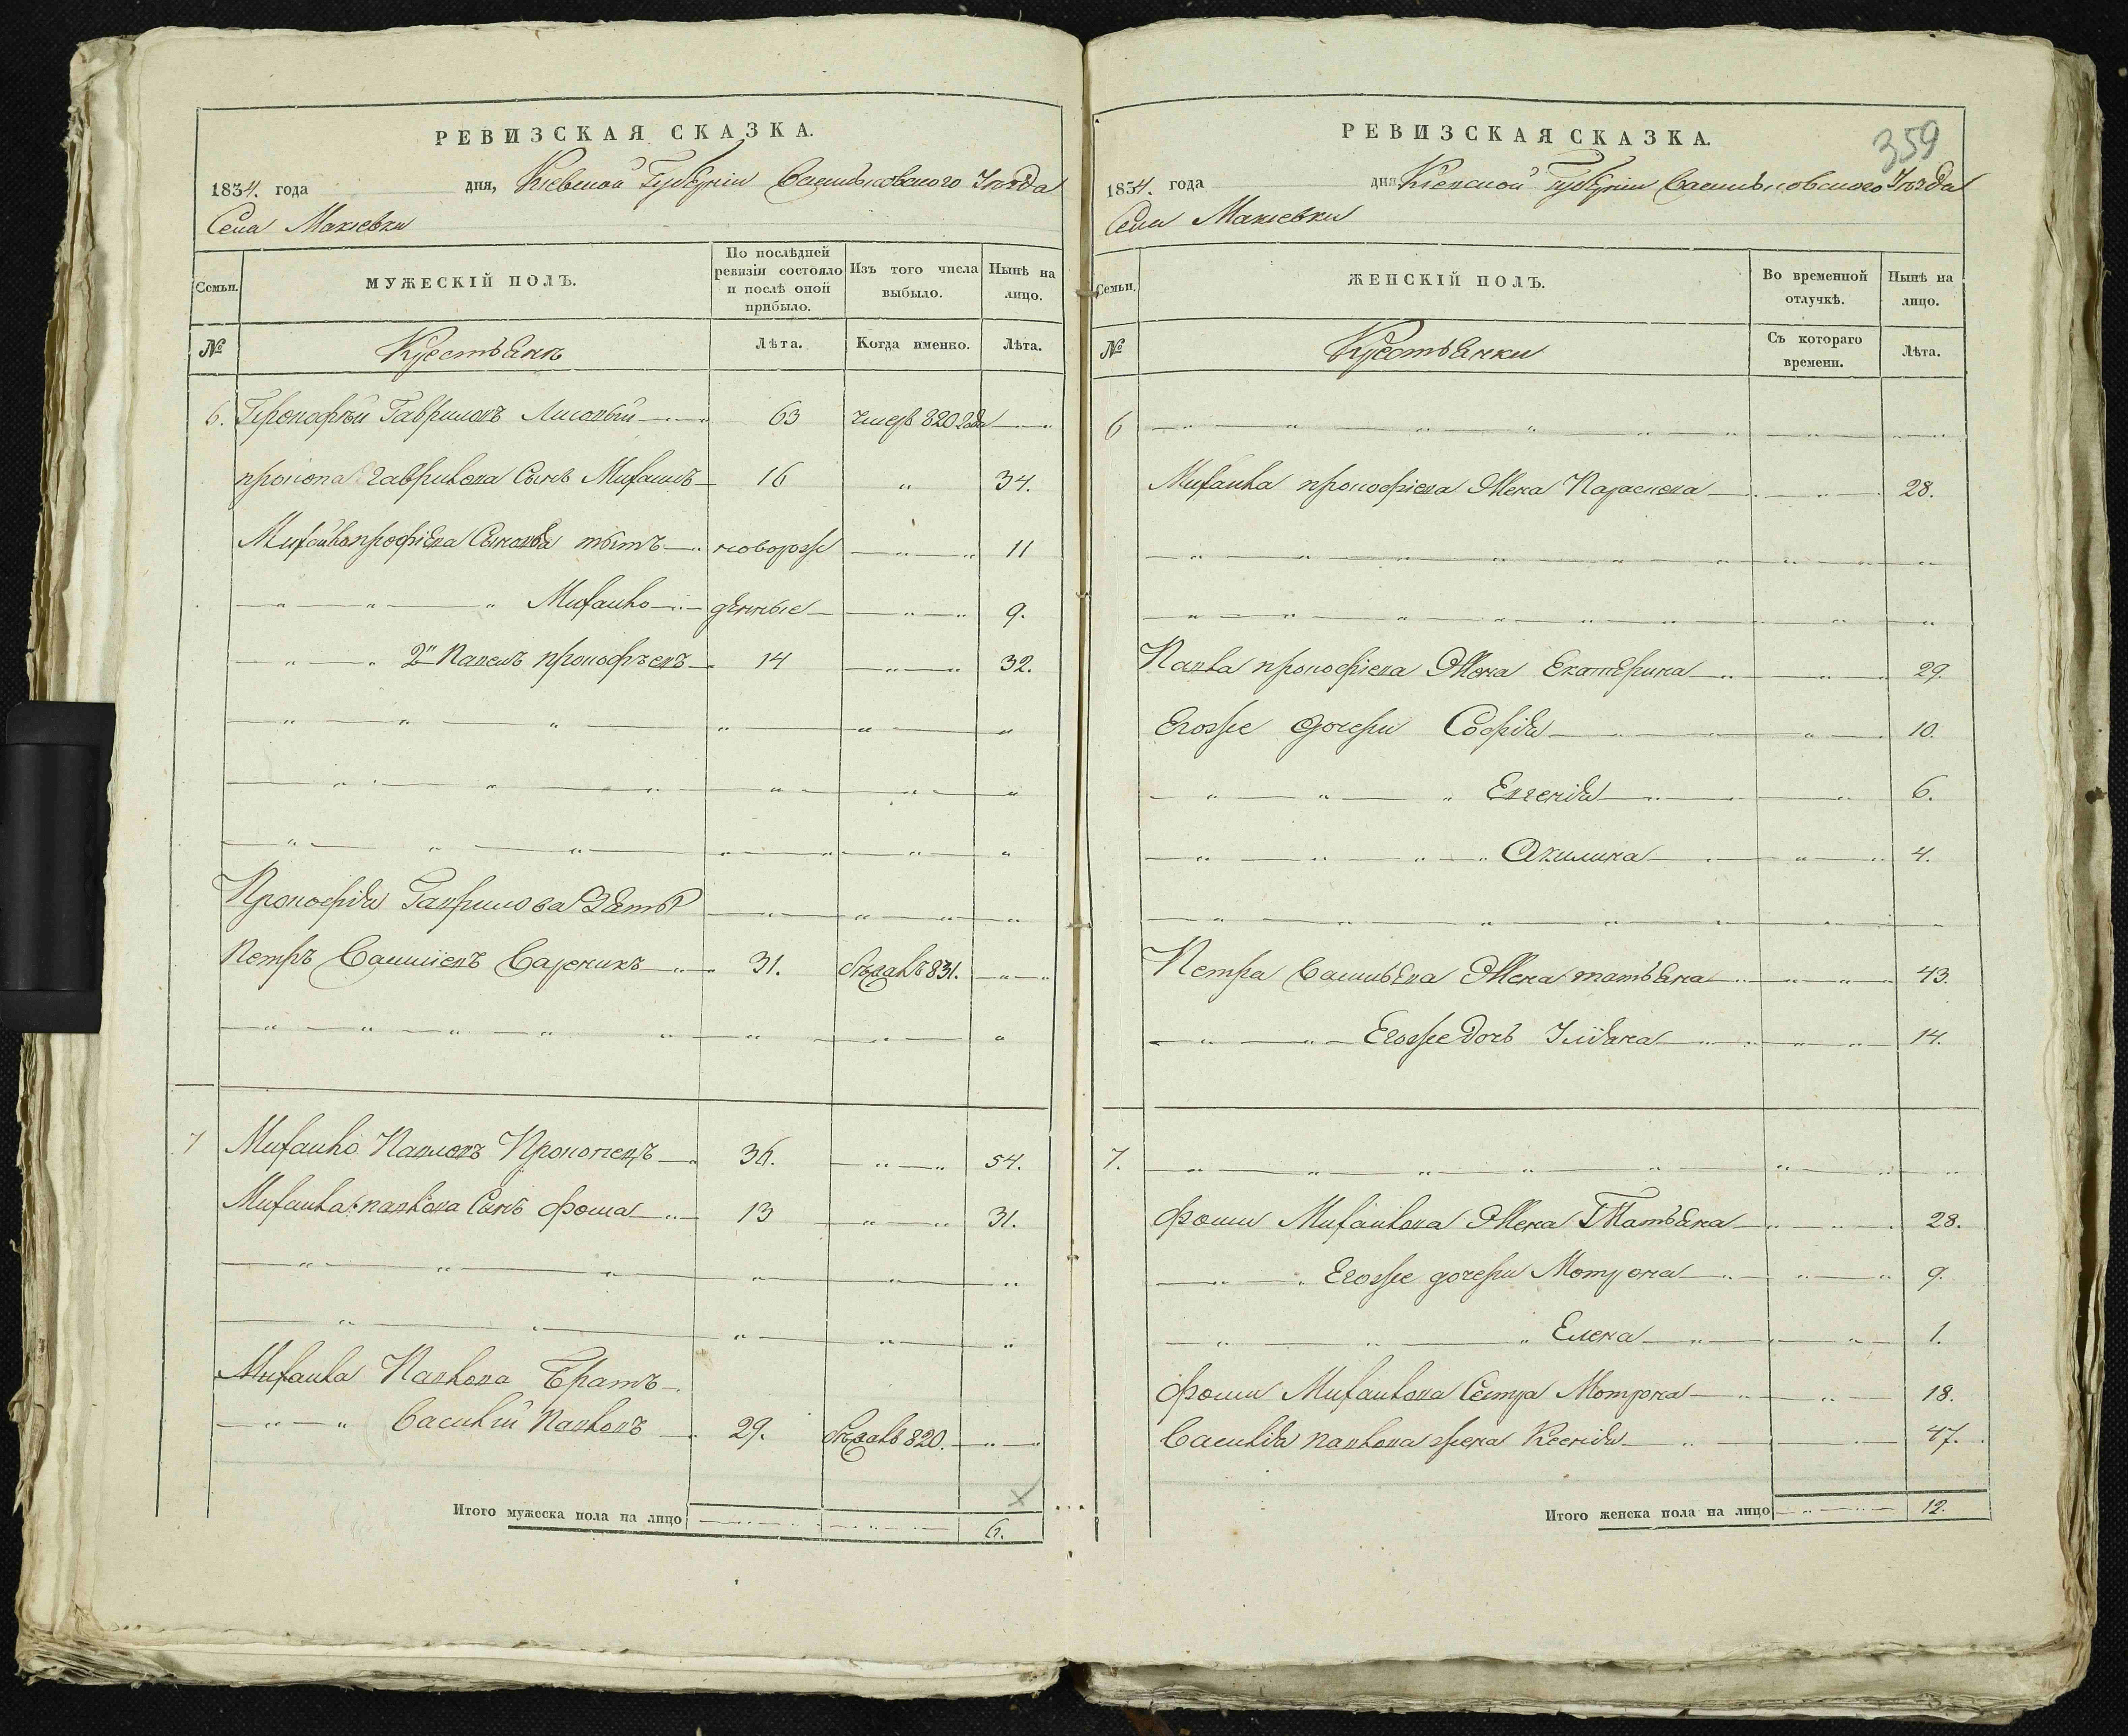 РЕВИЗСКАЯ СКАЗКА.
1834. года дня, Кіевской Губерніи Васильковского Уѣзда
Села Макіевки
Семьи.
МУЖЕСКІЙ ПОЛЪ.
По послѣдней ревизіи состояло и послѣ оной прибыло.
Изъ того числа выбыло.
Нынѣ на лицо.
№
Крестьянъ
Лѣта.
Когда именно.
Лѣта.
6. Прокофѣй Гавриловъ Лисовый 63 умеръ 820 года
Гаврилова Сынъ Михаилъ 16 „ 34.
Сыновья титъ новорож 11
Михайло денные 9.
2й Павелъ прокофѣевъ 14 32.
Прокофія Гаврилова Зять
Петръ Василіевъ 31. бѣжалъ 831.
7 Михайло Павловъ 36. 54.
Михайла павлова Сынъ фома 13 31.
Михайла Павлова Братъ
Василій Павловъ 29. бѣжалъ 820.
Итого мужеска пола на лицо 6.
359
РЕВИЗСКАЯ СКАЗКА.
1834. года дня Кіевской Губерніи Васильковского Уѣзда
Села Макіевки
Семьи.
ЖЕНСКІЙ ПОЛЪ.
Во временной отлучкѣ.
Нынѣ на лицо.
№
Крестьянки
Съ котораго времени.
Лѣта.
6
Михайла прокофіева Жена Параскева 28.
Павла прокофіева Жена Екатерина 29.
Егоже дочери Софія 10.
Евгенія 6.
Акилина 4.
Петра Васильева Жена татьяна 43.
Егоже дочь Уліяна 14.
7.
Фомы Михайлова Жена Татьяна 28.
Егоже дочери Мотрона 9.
Елена 1.
Фомы Михайлова Сестра Мотрона 18.
Василія павлова жена Ксенія 47.
Итого женска пола на лицо 12.